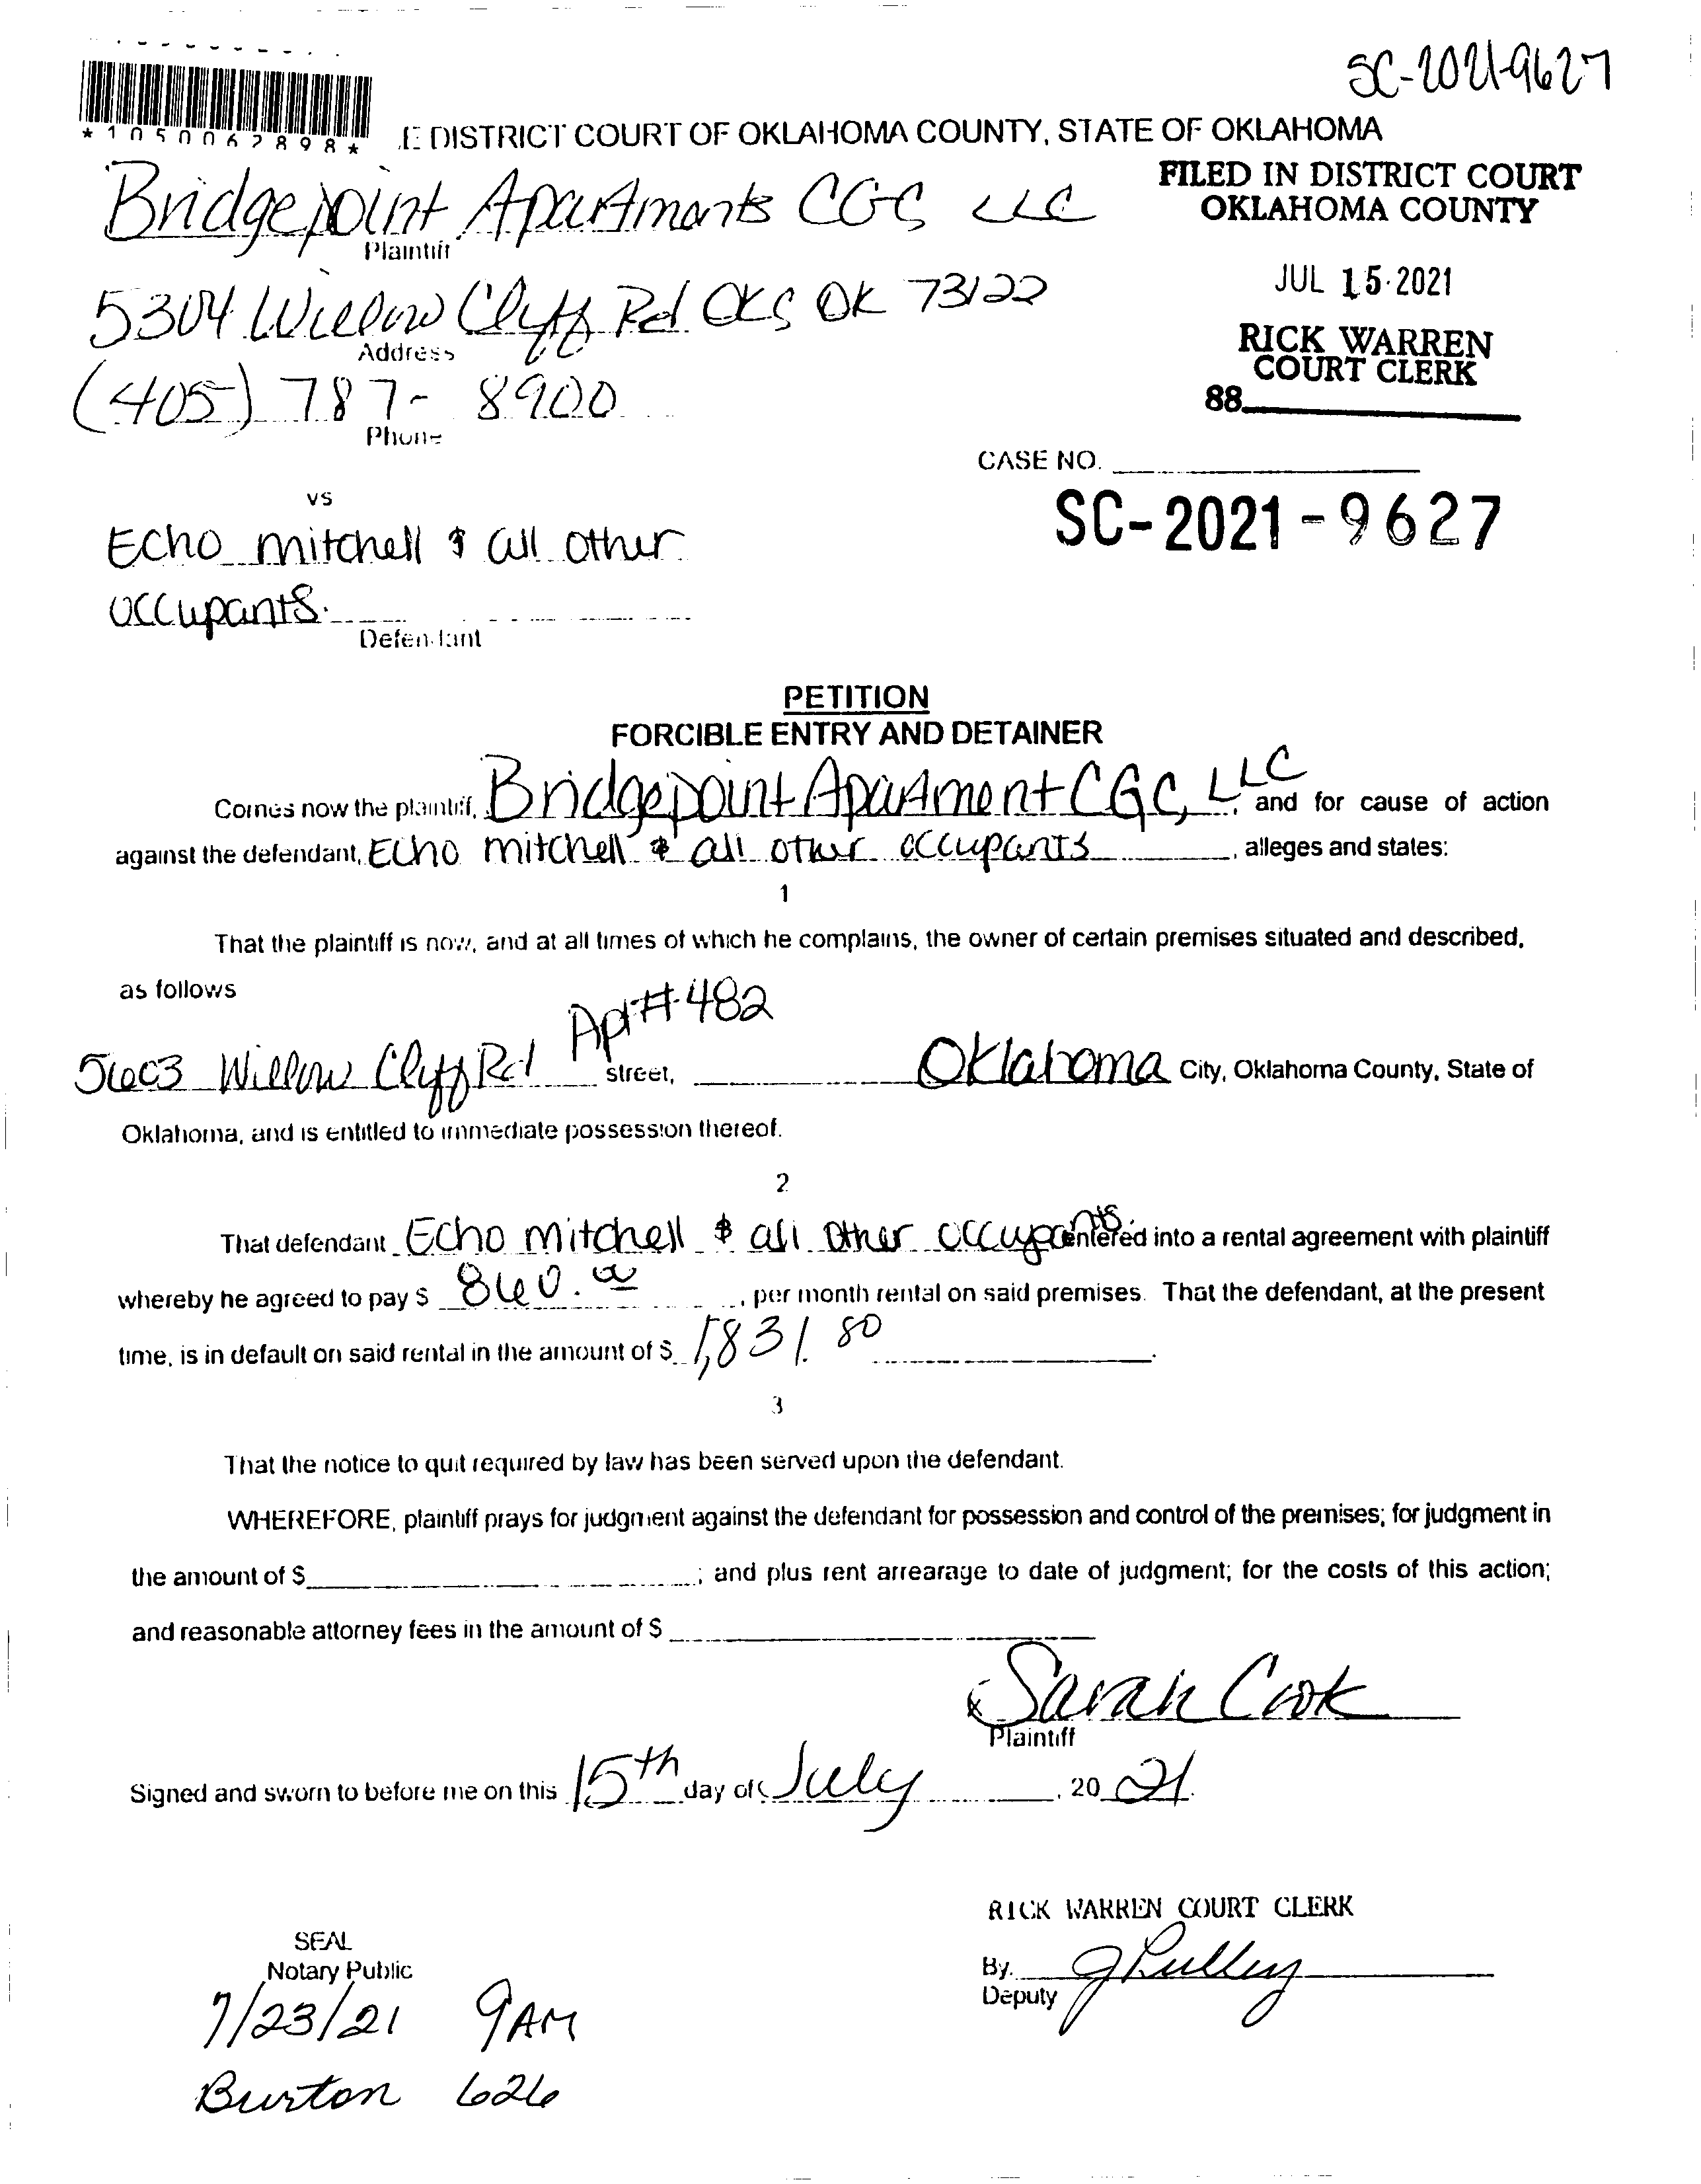 SC-2021-9627
*1050062898*
E DISTRICT COURT OF OKLAHOMA COUNTY, STATE OF OKLAHOMA
Bridgepoint Apartments CGC LLC
Plaintiff
FILED IN DISTRICT COURT
OKLAHOMA COUNTY
5304 Willow Cliff Rd OKC OK 73122
Address
JUL 15 2021
RICK WARREN
COURT CLERK
88
(405) 787-8900
Phone
CASE NO.
vs
SC-2021-9627
Echo mitchell & all other
occupants.
Defendant
PETITION
FORCIBLE ENTRY AND DETAINER
Comes now the plaintiff, Bridgepoint Apartment CGC, LLC, and for cause of action
against the defendant, Echo mitchell & all other occupants, alleges and states:
1
That the plaintiff is now, and at all times of which he complains, the owner of certain premises situated and described,
as follows
5603 Willow Cliff Rd Apt# 482 street, Oklahoma City, Oklahoma County, State of
Oklahoma, and is entitled to immediate possession thereof.
2
That defendant Echo mitchell & all other occupants. entered into a rental agreement with plaintiff
whereby he agreed to pay $ 860.00, per month rental on said premises. That the defendant, at the present
time, is in default on said rental in the amount of $ 1,831.80.
3
That the notice to quit required by law has been served upon the defendant.
WHEREFORE, plaintiff prays for judgment against the defendant for possession and control of the premises; for judgment in
the amount of $ ; and plus rent arrearage to date of judgment; for the costs of this action;
and reasonable attorney fees in the amount of $
x Sarah Cook
Plaintiff
Signed and sworn to before me on this 15th day of July, 20 21.
RICK WARREN COURT CLERK
SEAL
Notary Public
By
Deputy
7/23/21 9AM
Burton 626